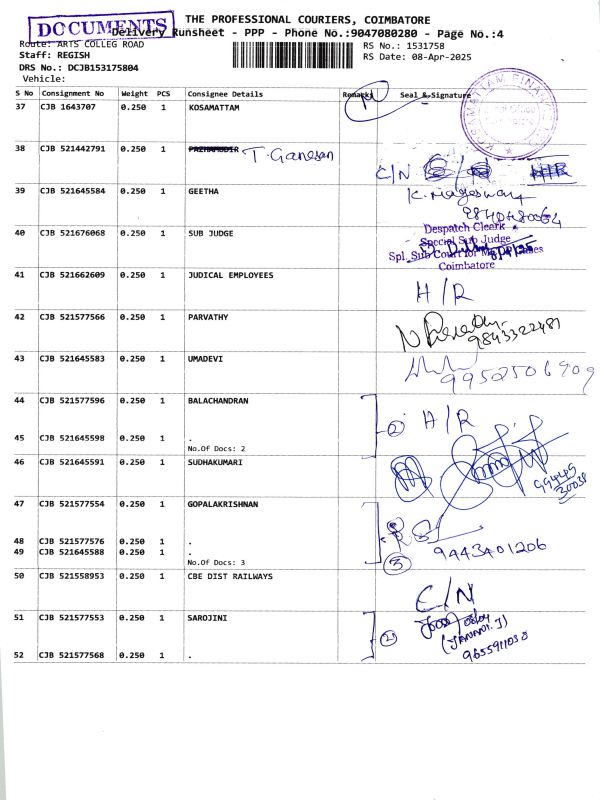 DOCUMENTS
THE PROFESSIONAL COURIERS, COIMBATORE
Delivery Runsheet - PPP - Phone No.:9047080280 - Page No.:4
Route: ARTS COLLEG ROAD RS No.: 1531758
Staff: REGISH RS Date: 08-Apr-2025
DRS No.: DCJB153175804
Vehicle:
S No Consignment No Weight PCS Consignee Details Remarks Seal & Signature
37 CJB 1643707 0.250 1 KOSAMATTAM
KOSAMATTAM FINANCE
38 CJB 521442791 0.250 1 T. Ganesan
C/N
39 CJB 521645584 0.250 1 GEETHA K. Mageswary
40 CJB 521676068 0.250 1 SUB JUDGE
Despatch Clerk
Special Sub Judge
Spl. Sub Court for Cases
Coimbatore
41 CJB 521662609 0.250 1 JUDICAL EMPLOYEES H/R
42 CJB 521577566 0.250 1 PARVATHY 9843322481
43 CJB 521645583 0.250 1 UMADEVI 9952506909
44 CJB 521577596 0.250 1 BALACHANDRAN 2 H/R
45 CJB 521645598 0.250 1 .
No.Of Docs: 2
46 CJB 521645591 0.250 1 SUDHAKUMARI
47 CJB 521577554 0.250 1 GOPALAKRISHNAN
48 CJB 521577576 0.250 1 .
49 CJB 521645588 0.250 1 . 9443401206
No.Of Docs: 3 3
50 CJB 521558953 0.250 1 CBE DIST RAILWAYS C/N
51 CJB 521577553 0.250 1 SAROJINI 2
(JANANI.J)
9655911038
52 CJB 521577568 0.250 1 .